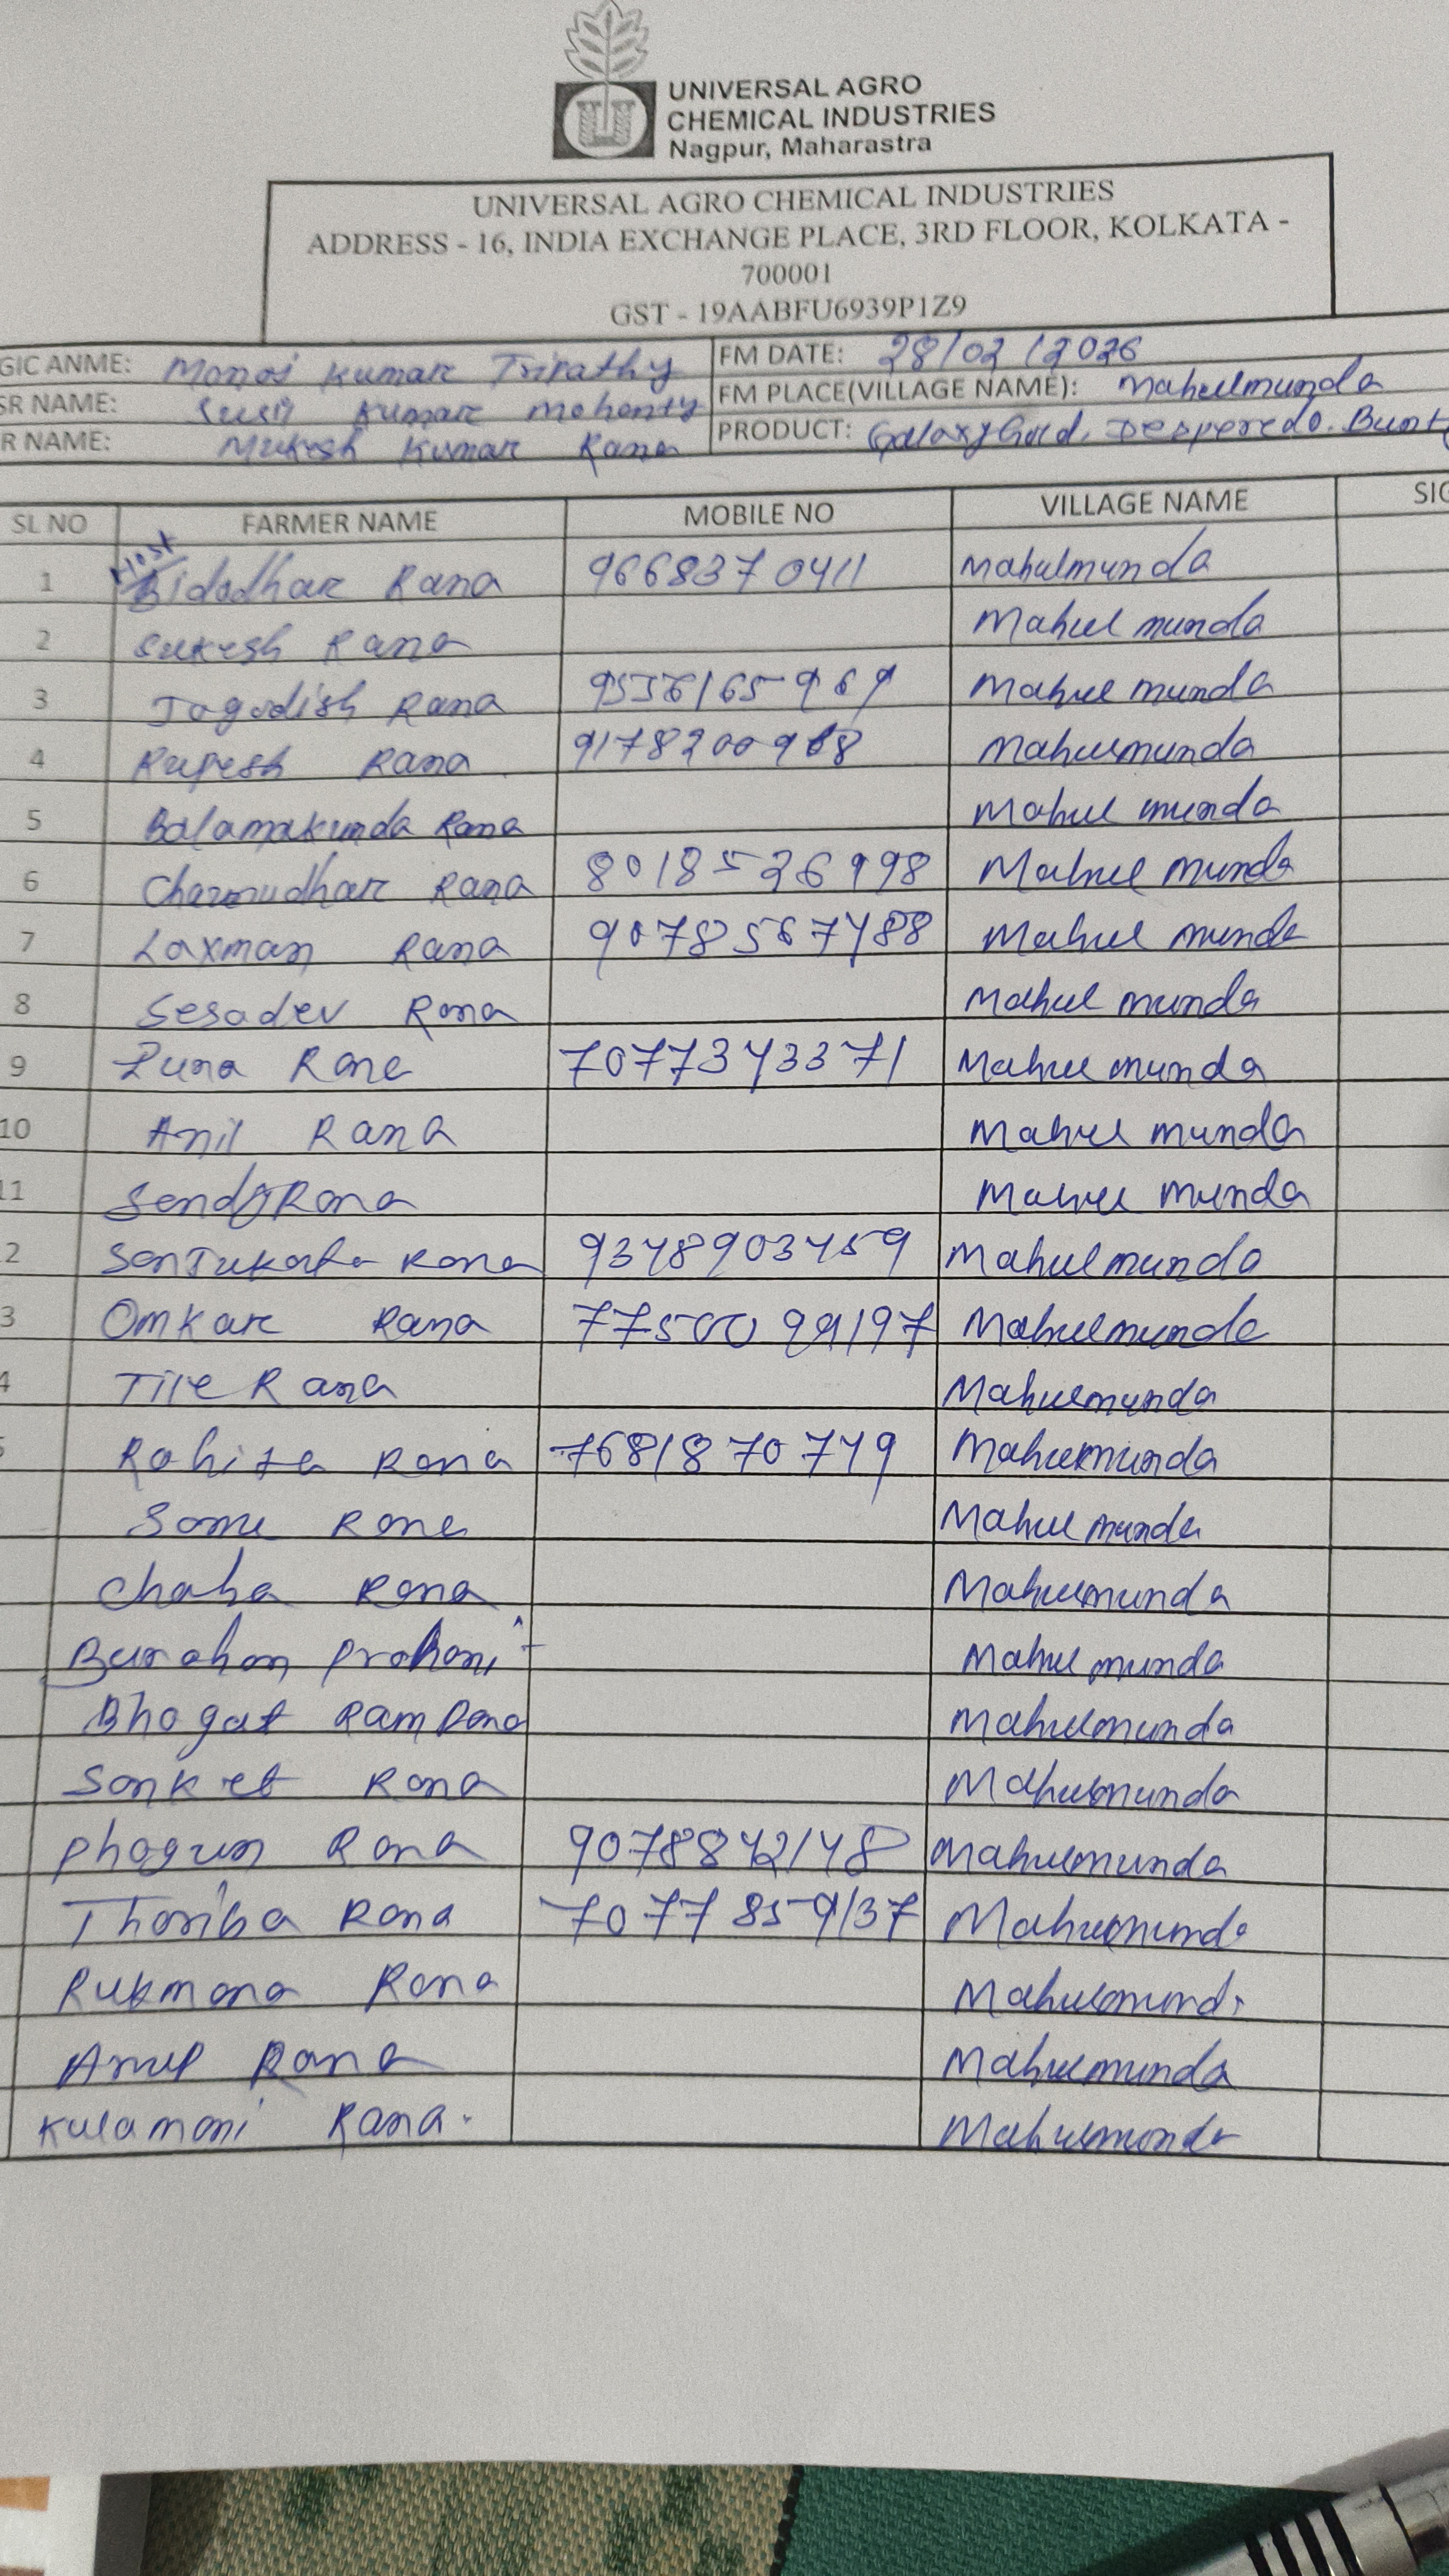 UNIVERSAL AGRO
CHEMICAL INDUSTRIES
Nagpur, Maharastra
UNIVERSAL AGRO CHEMICAL INDUSTRIES
ADDRESS - 16, INDIA EXCHANGE PLACE, 3RD FLOOR, KOLKATA -
700001
GST - 19AABFU6939P1Z9
GIC ANME: Manoj Kumar Tripathy FM DATE: 28/02/2026
SR NAME: Susil Kumar Mohanty FM PLACE(VILLAGE NAME): Mahulmunda
R NAME: Mukesh Kumar Rana PRODUCT: Galaxy Gold, Desperedo. Bunty
SL NO FARMER NAME MOBILE NO VILLAGE NAME SIG
Host
1 Bidadhar Rana 9668370411 Mahulmunda
2 Sukesh Rana Mahul munda
3 Jagadish Rana Mahul munda
4 Rupesh Rana Mahulmunda
5 Balamakunda Rana Mahul munda
6 Rana 8018526998 Mahul munda
7 Laxman Rana 9078567488 Mahul munda
8 Sesadev Rana Mahul munda
9 Rana 7077343371 Mahul munda
10 Anil Rana Mahul munda
11 Rana Mahul munda
2 Rana 9348903459 Mahulmunda
3 Omkar Rana 7750099197 Mahulmunda
4 Rana Mahulmunda
5 Rohita Rana 7681870749 Mahulmunda
Some Rana Mahul munda
Chaha Rana Mahulmunda
Mahul munda
Bhagat Ram Rana Mahulmunda
Sanket Rana Mahulmunda
Phagun Rana 9078842148 Mahulmunda
Rana 7077859137 Mahulmunda
Rukmana Rana Mahulmunda
Anup Rana Mahulmunda
Kulamani Rana. Mahulmunda